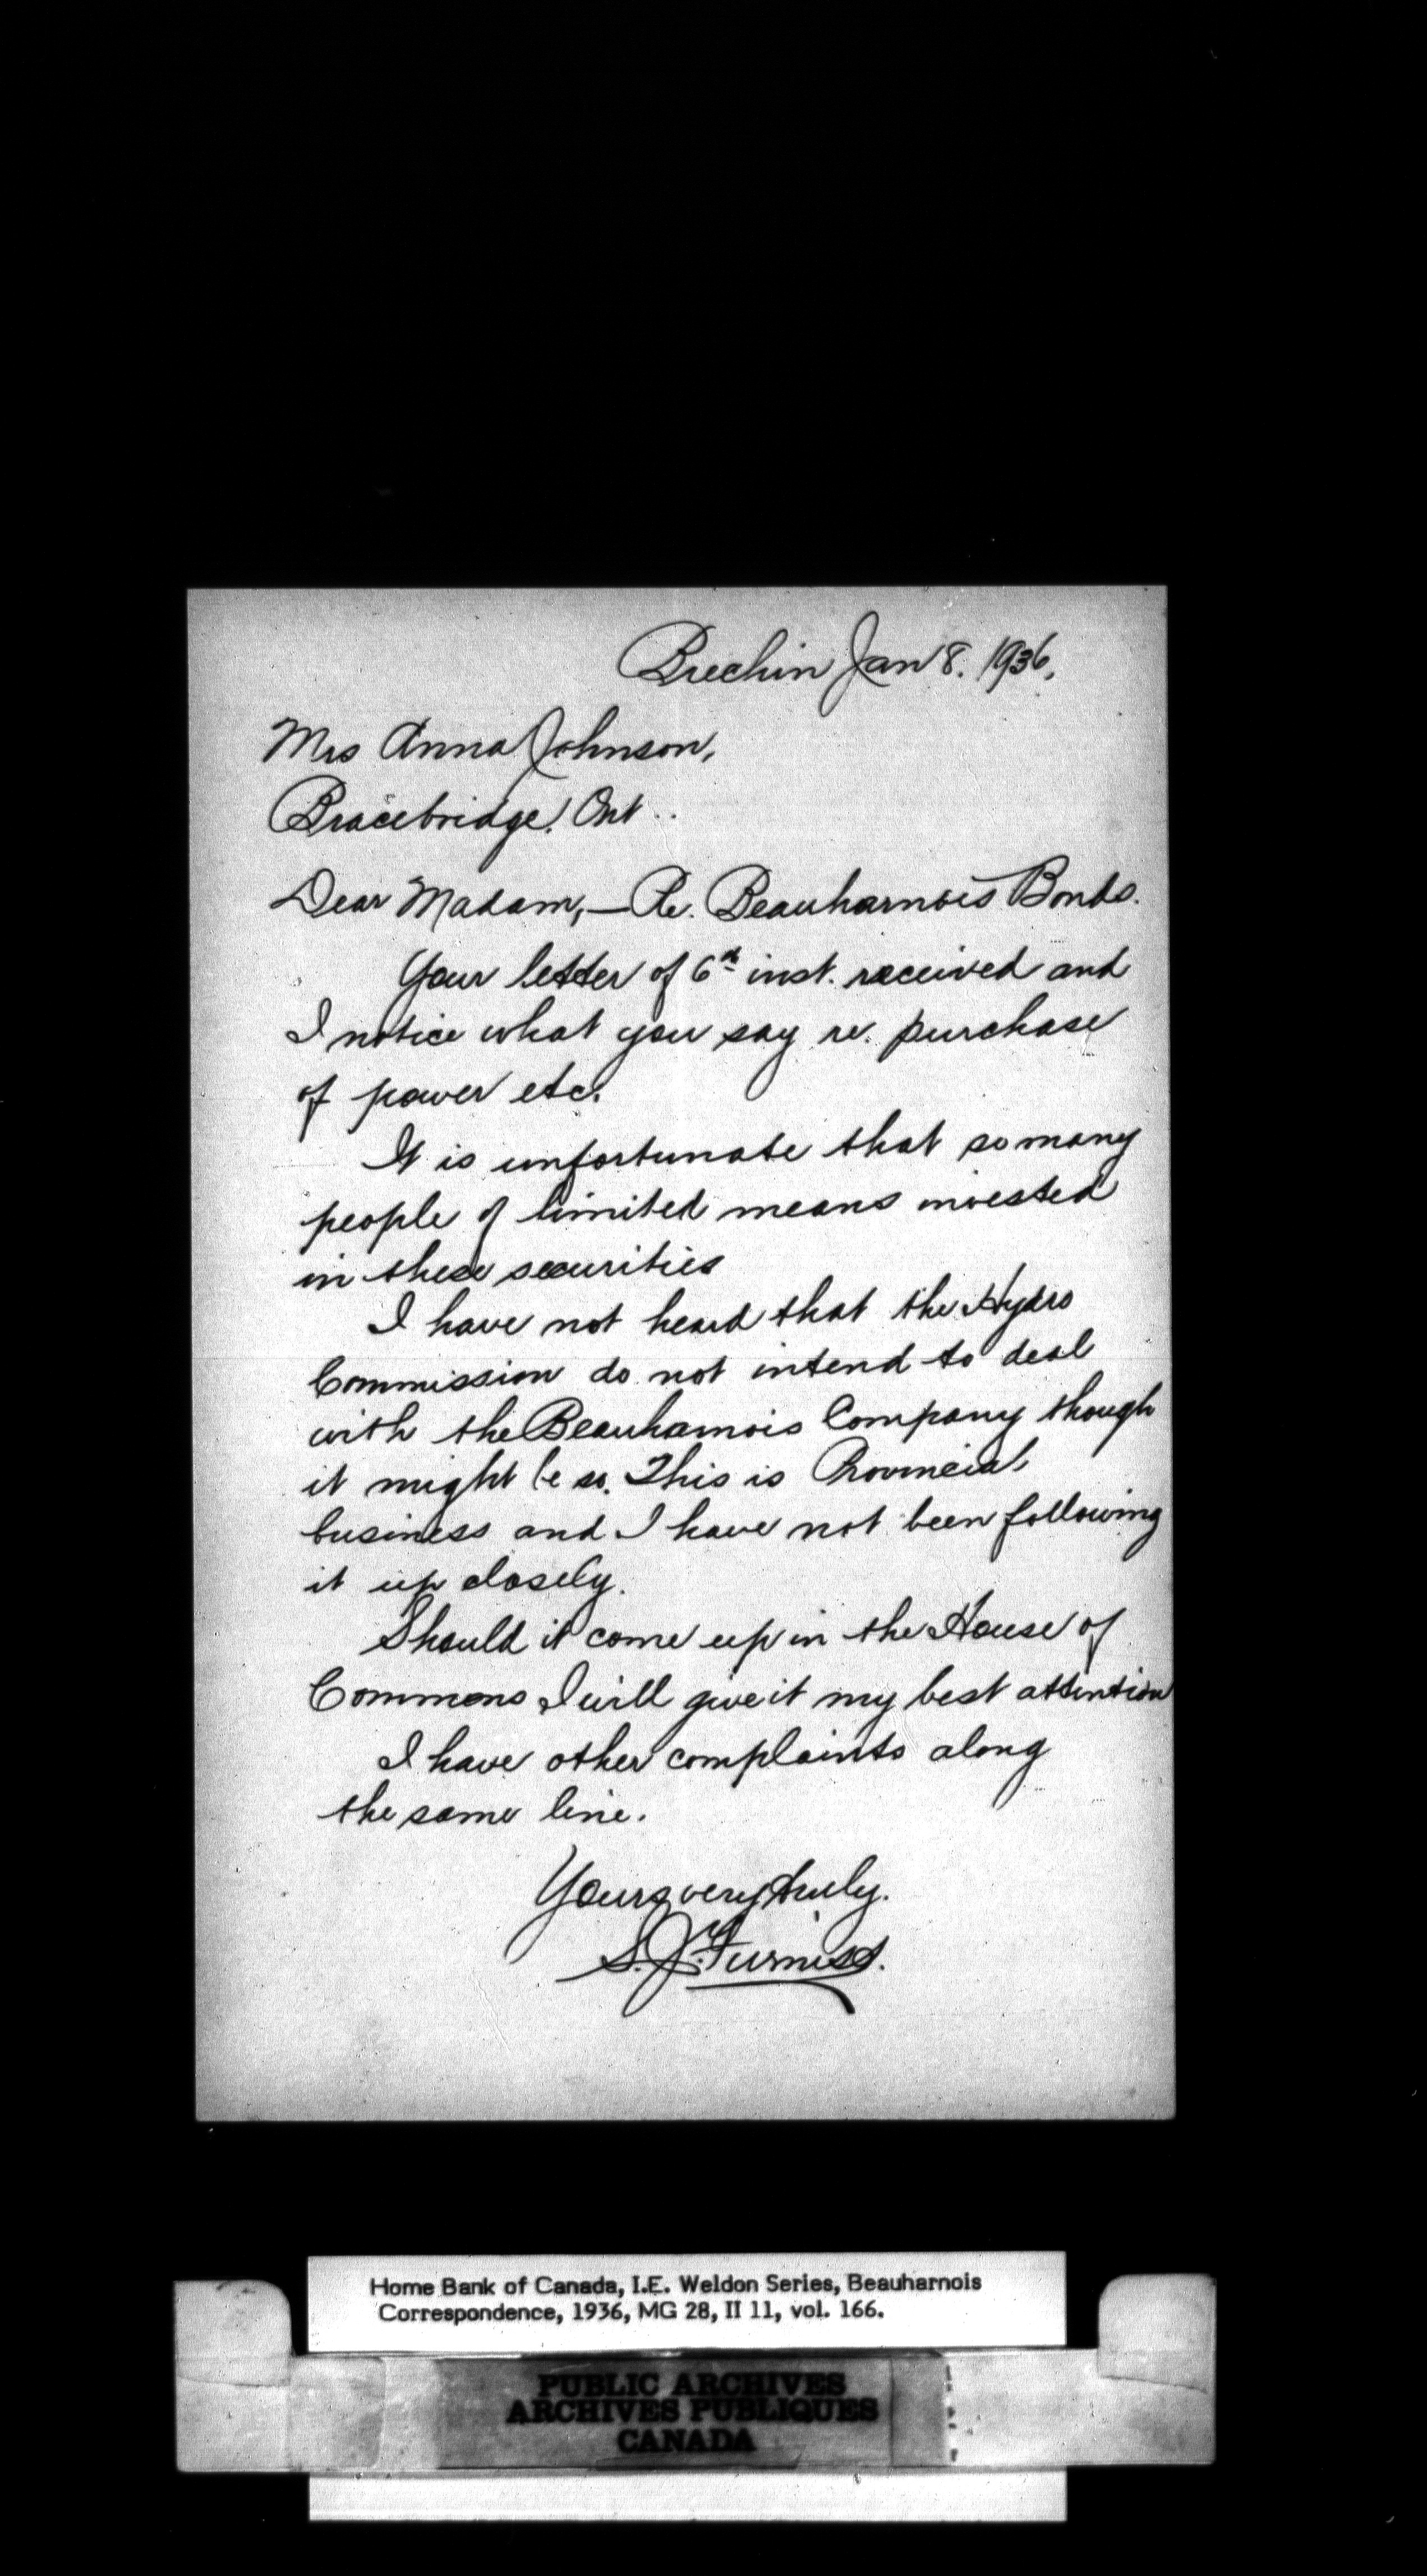 Brechin Jan 8. 1936,
Mrs Anna Johnson,
Bracebridge. Ont..
Dear Madam,— Re. Beauharnois Bonds.
Your letter of 6th inst. received and
I notice what you say re. purchase
of power etc.
It is unfortunate that so many
people of limited means invested
in these securities
I have not heard that the Hydro
Commission do not intend to deal
with the Beauharnois Company though
it might be so. This is Provincial
business and I have not been following
it up closely.
Should it come up in the House of
Commons I will give it my best attention
I have other complaints along
the same line.
Yours very truly.
S.J. Furniss.
Home Bank of Canada, I.E. Weldon Series, Beauharnois
Correspondence, 1936, MG 28, II 11, vol. 166.
PUBLIC ARCHIVES
ARCHIVES PUBLIQUES
CANADA